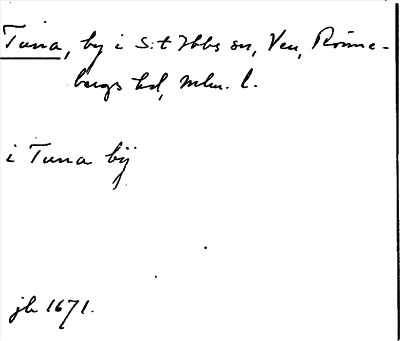 Tuna, by i S:t Ibbs sn, Ven, Rönne-
bergs hd, Mlm. l.
i Tuna bÿ
jb 1671.